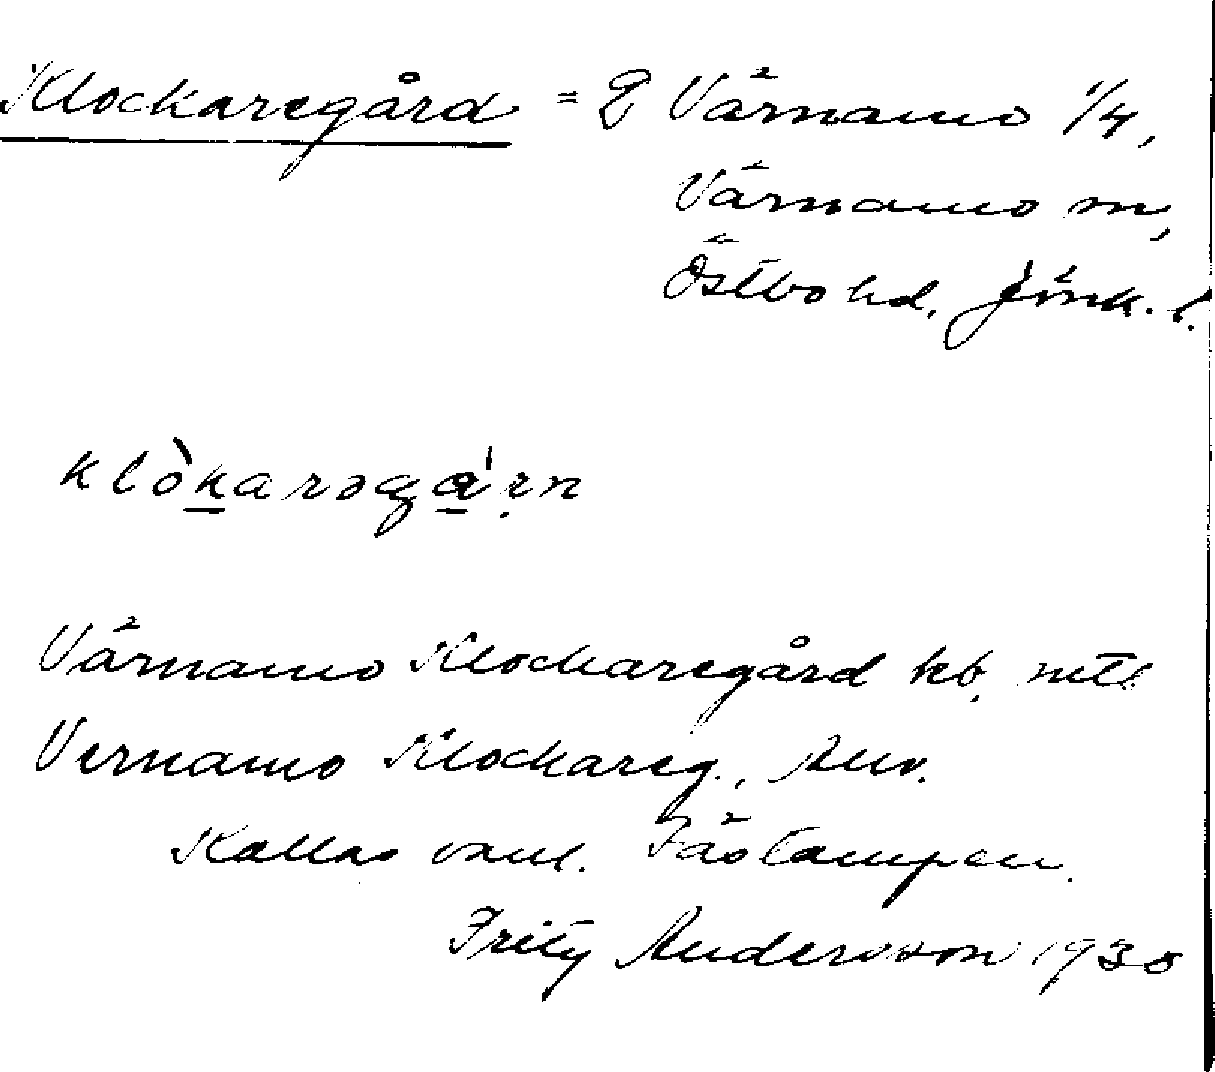 Klockaregård = 2 Värnamo 1/4,
Värnamo sn,
Östbo hd, Jönk. l.
klòkarəgá'rn
Värnamo Klockaregård kb,
Vernamo Klockareg.,
Kallas vanl.
Fritz Andersson 1930